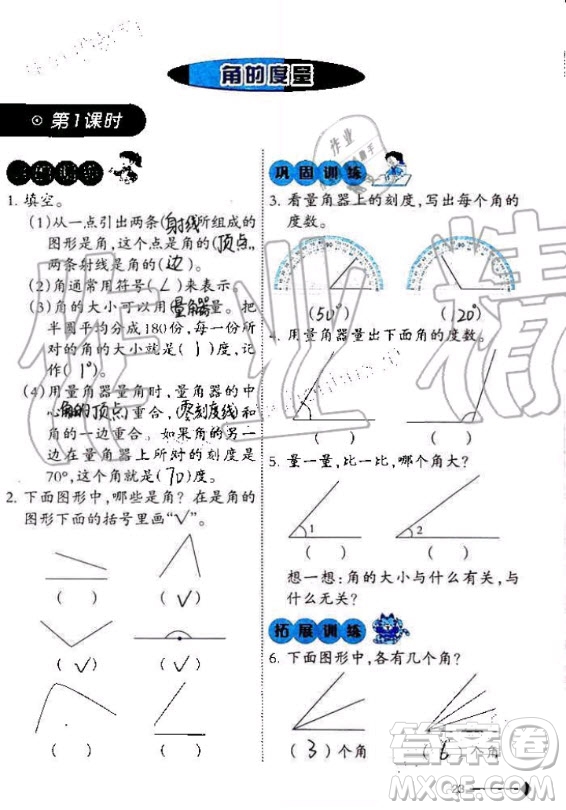 角的度量
第1课时
1. 填空。
(1)从一点引出两条(射线)所组成的
图形是角,这个点是角的(顶点),
两条射线是角的(边)。
(2)角通常用符号(∠)来表示。
(3)角的大小可以用(量角器)量。把
半圆平均分成180份,每一份所
对的角的大小就是(1)度,记
作(1°)。
(4)用量角器量角时,量角器的中
心(角的顶点)重合,(零刻度线)和
角的一边重合。如果角的另一
边在量角器上所对的刻度是
70°,这个角就是(70)度。
2. 下面图形中,哪些是角?在是角的
图形下面的括号里画“√”。
( ) (√)
(√) (√)
( ) ( )
巩固训练
3. 看量角器上的刻度,写出每个角的
度数。
(50°) (120°)
4. 用量角器量出下面角的度数。
( ) ( )
5. 量一量,比一比,哪个角大?
1 2
( ) ( )
想一想:角的大小与什么有关,与
什么无关?
拓展训练
6. 下面图形中,各有几个角?
(3)个角 (6)个角
23
答案圈
MXQE.COM
作业精